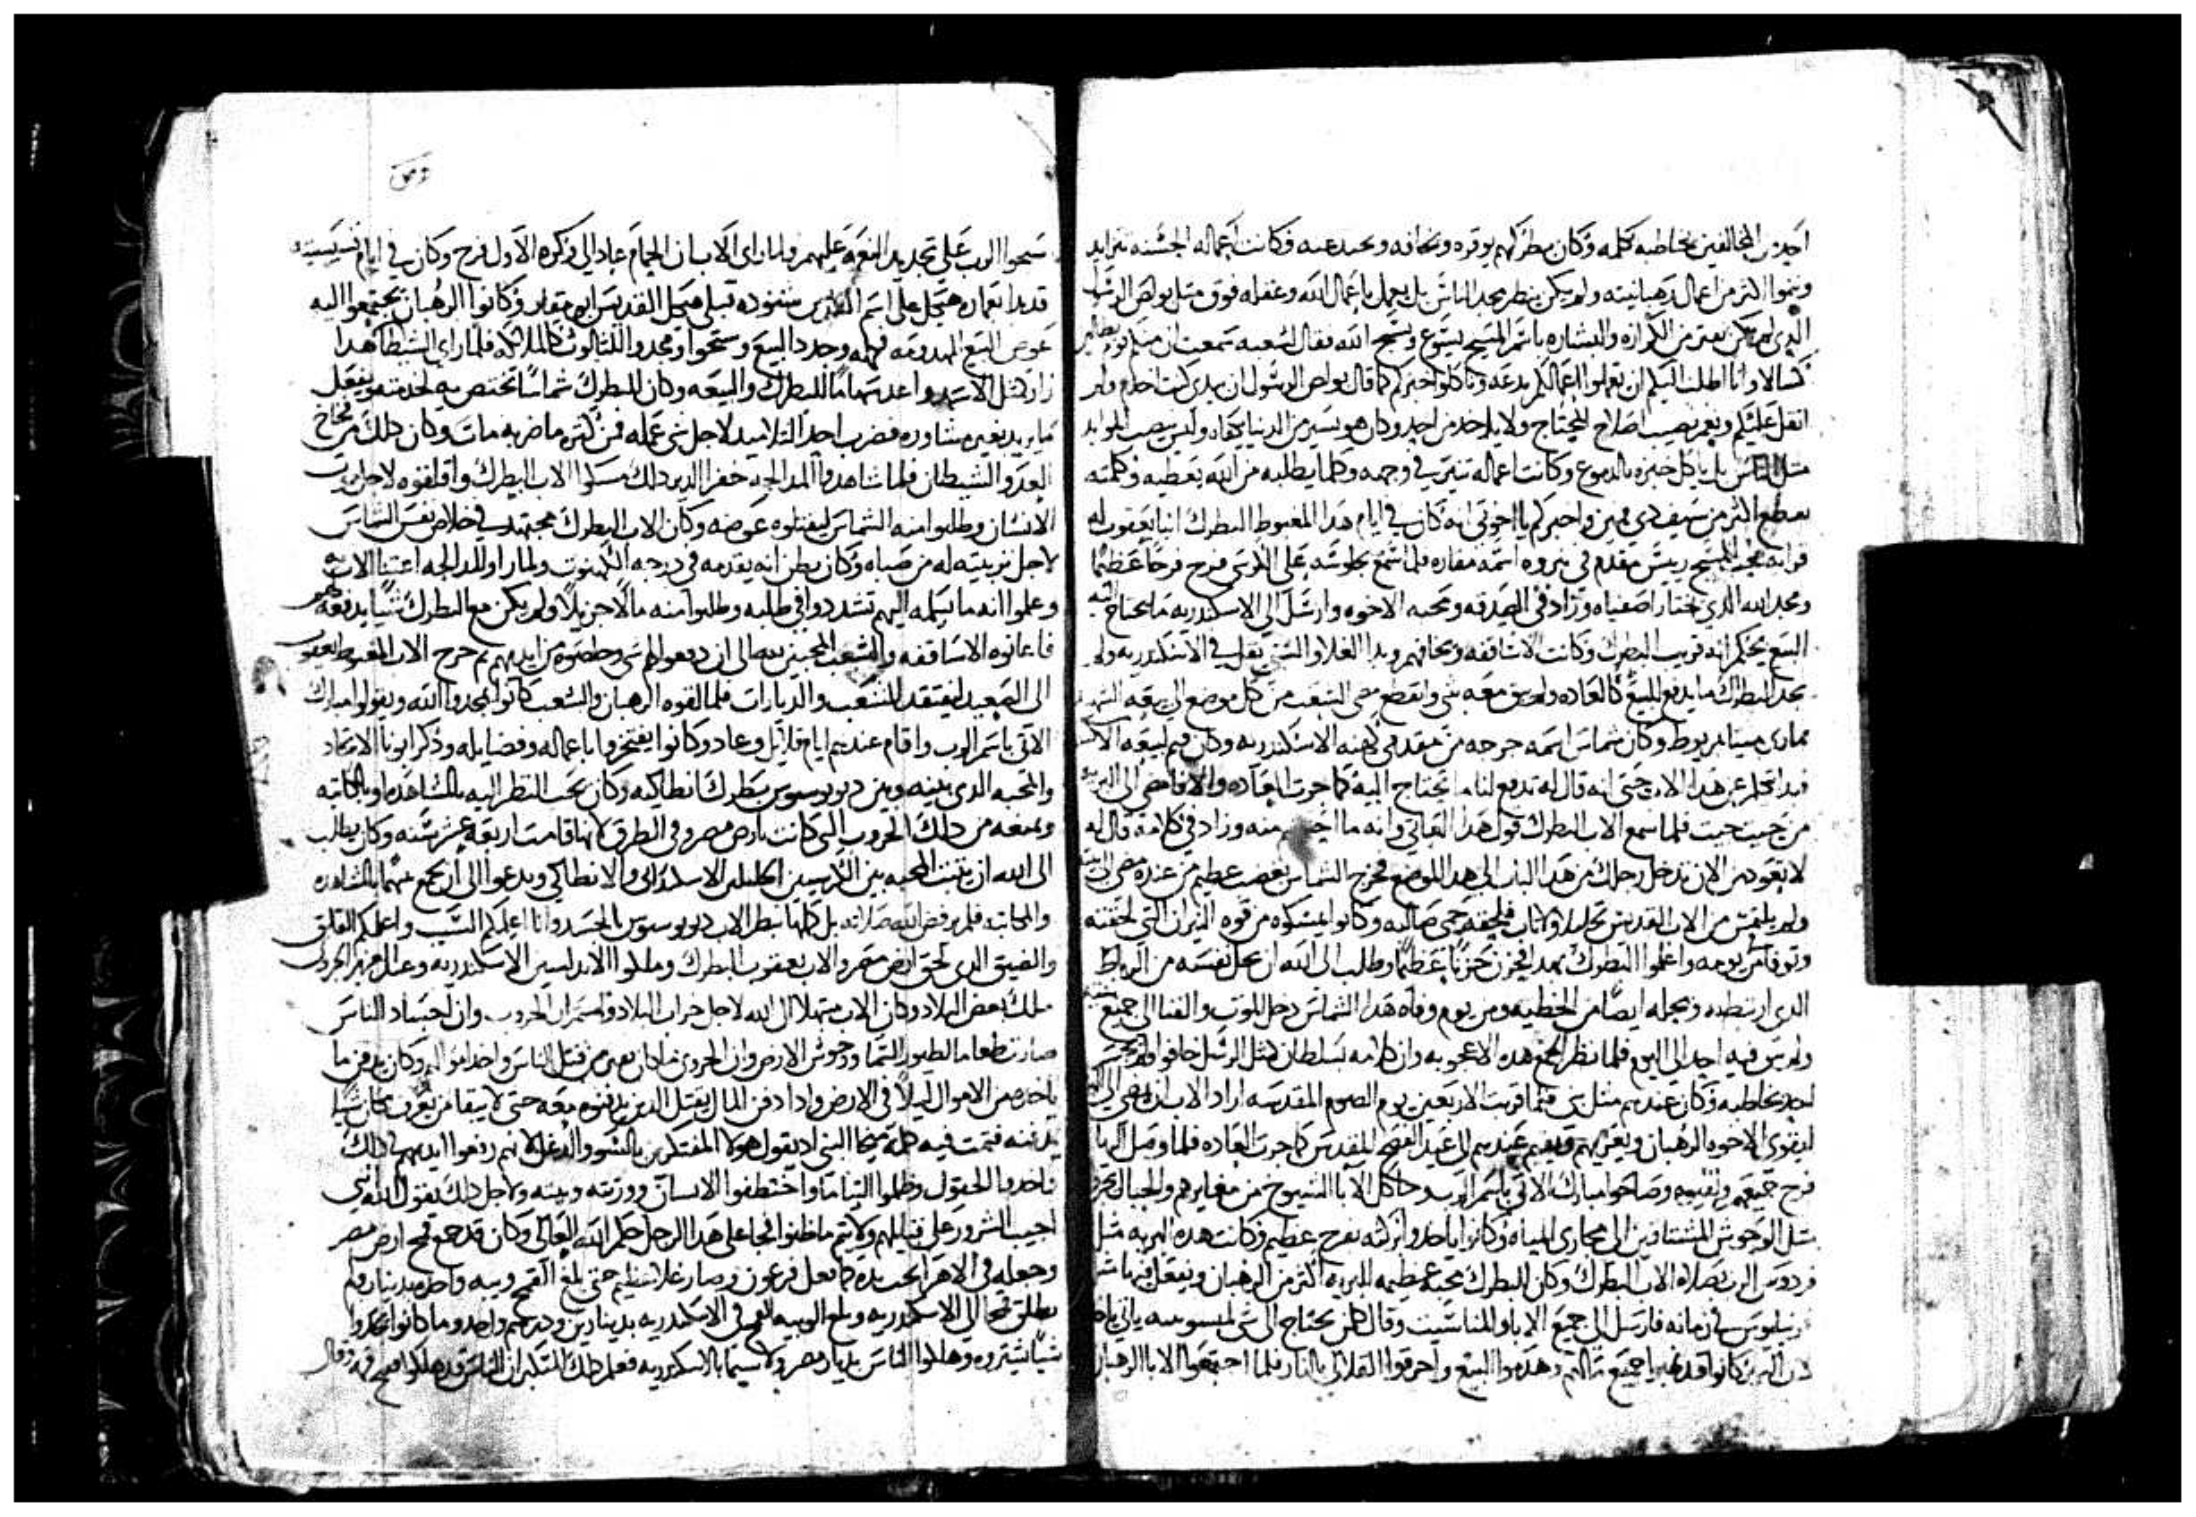 احد من المخالفين يخاطبه بكلمه وكان بطركهم يوقره ويخافه ويحيد عنه وكانت اعماله الحسنه تتزايد
وينموا اكثر من اعمال رهبانيته ولم يكن ينظر بمجد الناس بل يعمل باعمال الله وعقله فوق مثل بولص الرسول
الذي لم يكن يفتر من الكرازه والبشاره باسم المسيح يسوع ويسبح الله فقال لشعبه سمعت ان منكم قوم بطالين
كسالا وانا اطلب اليكم ان تعملوا اعمالكم بدعه وتاكلوا خبزكم كما قال بولص الرسول ان يدي كانت تخدم ولم
اثقل عليكم ويعمر نصيب اصلاح للمحتاج ولا ياخد من احد وكان هو يسير من الدنيا كفاه وليس ينصب الموايد
مثل الناس بل ياكل خبزه بالدموع وكانت اعماله تنير في وجهه وكلما يطلبه من الله يعطيه وكلمته
تقطع اكثر من سيف دي فمين واخبركم يا اخوتي انه كان في ايام هدا المغبوط البطرك انبا يعقوب
محب المسيح رييس مقدم في نيروه اسمه مقاره فلما سمع بجلوسه على الكرسي فرح فرحا عظيما
ومجد الله الذي اختار اصفياه وزاد في الصدقه ومحبه الاخوه وارسل الى الاسكندريه ما يحتاج اليه
البيع بحكم انه قريب البطرك وكانت الاساقفه وبدا الغلا والسي يقل في الاسكندريه ولم
يجد البطرك ما يدفع للبيع كالعاده ولم يبق معه شي وانقطع مضي الشعب من كل موضع الى بيعه الشهيد
ماري مينا بمريوط وكان شماس اسمه جرجه من مقدمي كهنه الاسكندريه وكان قيم لبيعه
هدا الاب حتى انه قال له تدفع لنا ما تحتاج اليه كما جرت العاده والا فامضي الى البريه
من حيث جيت فلما سمع الاب البطرك قول هدا القايل وانه ما منه وزاد في كلامه قال له
لا تعود من الان تدخل رجلك من هدا الباب الى هدا الموضع فخرج الشماس بغضب عظيم من عنده مضى الى بيته
ولم يلتمس من الاب القديس تحليلا ولا تاب فلحقته حمى صالبه وكانوا يمسكوه من قوه النيران التي لحقته
وتوفا من يومه واعلموا البطرك بهدا فحزن حزنا عظيما وطلب الى الله ان يحل نفسه من الرباط
الدي ارتبط به ويجعله ايضا من الخطيه ومن يوم وفاه هدا الشماس دخل الموت والفنا الى جميع
ولم يبق فيه احد الى اليوم فلما نظر الجمع هده الاعجوبه وان كلامه بسلطان مثل الرسل خافوا
احد يخاطبه وكان عندهم مثل نبي فلما قربت الاربعين يوم الصوم المقدسه اراد الاب ان يمضي الى
ليقوي الاخوه الرهبان ويعزيهم ويقيم عندهم الى عيد الفصح المقدس كما جرت العاده فلما وصل
فرح جميعهم ولقيوه وصاحوا مبارك الاتي باسم الرب وجا كل الابا الشيوخ من مغايرهم والجبال
مثل الوحوش المشتاقين الى مجاري المياه وكانوا ياخدوا بركته بفرح عظيم وكانت هده البريه مثل
فردوس الرب بصلاه الاب البطرك وكان للبطرك محبه عظيمه للبريه اكثر من الرهبان ويفعل
في زمانه فارسل الى جميع الابا والمناشيت وقال كلمن يحتاج الى شي ياتي ياخد
لان البربر كانوا قد نهبوا جميع مالهم وهدموا البيع واحرقوا القلالي بالنار فلما اجتمعوا الابا الرهبان
سبحوا الرب على تجديد النعمه عليهم ولما راى الاب ان الجمع عاد الى دكره الاول فرح وكان في ايام قسيسيته
قد بدا بعماره هيكل على اسم القديس شنوده قبلي هيكل القديس ابو مقار وكانوا الرهبان يجتمعوا اليه
عوض البيع المهدومه فكمله وجدد البيع وسبحوا ومجدوا الثالوث كالملايكه فلما راى الشيطان هدا
زار مثل الاسد واعد سهاما للبطرك والبيعه وكان للبطرك شماسا تختص به لخدمته ويفعل
ما يريد بغير مشاوره فضرب احد التلاميد لاجل شي عمله فمن كثره ما ضربه مات وكان دلك من فخاخ
العدو الشيطان فلما شاهدوا دلك مسكوا الاب البطرك واقلقوه لاجل موت
الانسان وطلبوا منه الشماس ليقتلوه عوضه وكان الاب البطرك مجتهد في خلاص نفس الشماس
لاجل تربيته له من صباه وكان يظن انه يقدمه في درجه الكهنوت ولما راوا المدالجه اعتنا الاب به
وعلموا انه ما يسلمه اليهم تشددوا في طلبه وطلبوا منه مالا جزيلا ولم يكن مع البطرك شيا يدفعه لهم
فاعانوه الاساقفه والشعب المحبين تعالى ان دفعوا لهم شي وخلصوه من ايديهم ثم خرج الاب المغبوط يعقوب
الى الصعيد ليفتقد الشعب والديارات فلما لقوه الرهبان والشعب كانوا يمجدوا الله ويقولوا مبارك
الاتي باسم الرب واقام عندهم ايام قلايل وعاد وكانوا يفتخروا باعماله وفضايله ودكر ابونا الاتحاد
والمحبه الدي بينه وبين ديونوسيوس بطرك انطاكيه وكان يحب النظر اليه بالمشاهده او بالمكاتبه
ومنعه من دلك الحروب التي كانت بارض مصر وفي الطرق لانها قامت اربعه عشر سنه وكان يطلب
الى الله ان يثبت المحبه بين الكرسيين الجليلين الاسكندراني والانطاكي ويدعوا الى ان يجمع بينهما بالمشاهده
والمكاتبه فلم يرفض الله صلاته بل كلها نظر الاب ديونوسيوس بالجسد وانا اعلمكم السبب واعلمكم القلق
والضيق الدي لحق ارض مصر والاب يعقوب البطرك وملكوا الاندلسيين الاسكندريه وعبد العزيز الجروي
ملك بعض البلاد وكان الاب مبتهلا الى الله لاجل خراب البلاد واستمرار الحروب وان اجساد الناس
صارت طعاما لطيور السما ووحوش الارض وان الجروي ما كان يفتر من قتل الناس واخد اموالهم وكان يدفن ما
ياخده من الاموال ليلا في الارض وادا دفن المال يقتل الدين يدفنوه معه حتى لا يبقا من يعرف مكان شيا
يدفنه فتمت فيه كلمه ميخا النبي اد يقول هولا المفتكرين بالسو والدغل لانهم رفعوا ايديهم الى دلك
فاخدوا الحقول وظلموا اليتاما واختطفوا الانسان وورثته وبيته ولاجل دلك يقول الله اني
اجيب الشرور على قبايلهم ولا يتم ما ظنوا فجا على هدا الرجل حكم الله العالي وكان قد جمع قمح ارض مصر
وجعله في الاهرا تحت يده كما فعل فرعون وصار غلا عظيم حتى بلغ القمح ويبه واحده بدينار ولم
يطلق الى الاسكندريه وبلغ الويبه القمح في الاسكندريه بدينارين ودرهم واحد وما كانوا يجدوا
شيا يشتروه وهلكوا الناس بديار مصر ولا سيما بالاسكندريه فعلم دلك المتكبر ان الناس قد هلكوا